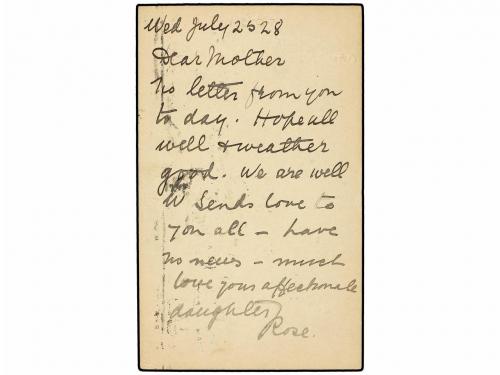 Wed July 25 28
Dear Mother
No letter from you
to day. Hope all
well & weather
good. We are well
W sends love to
you all - have
no news - much
love your affectionate
daughter
Rose.